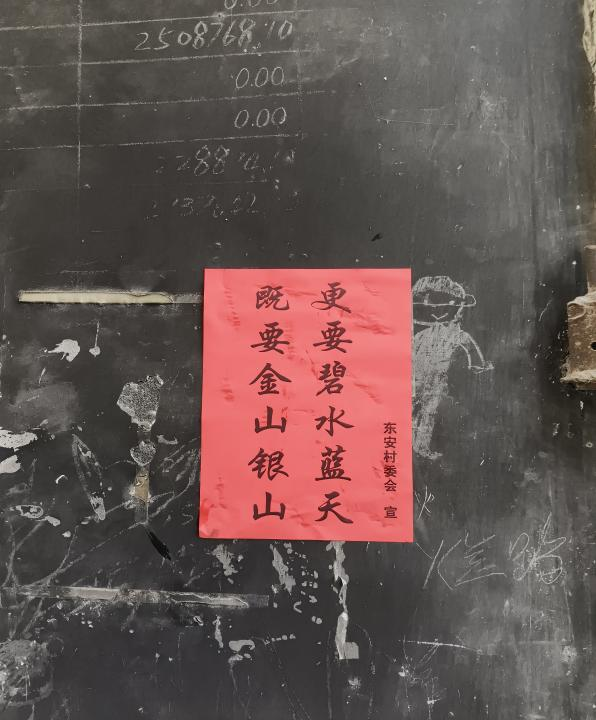 0.00
2508768.10
0.00
0.00
既要金山银山
更要碧水蓝天
东安村委会 宣